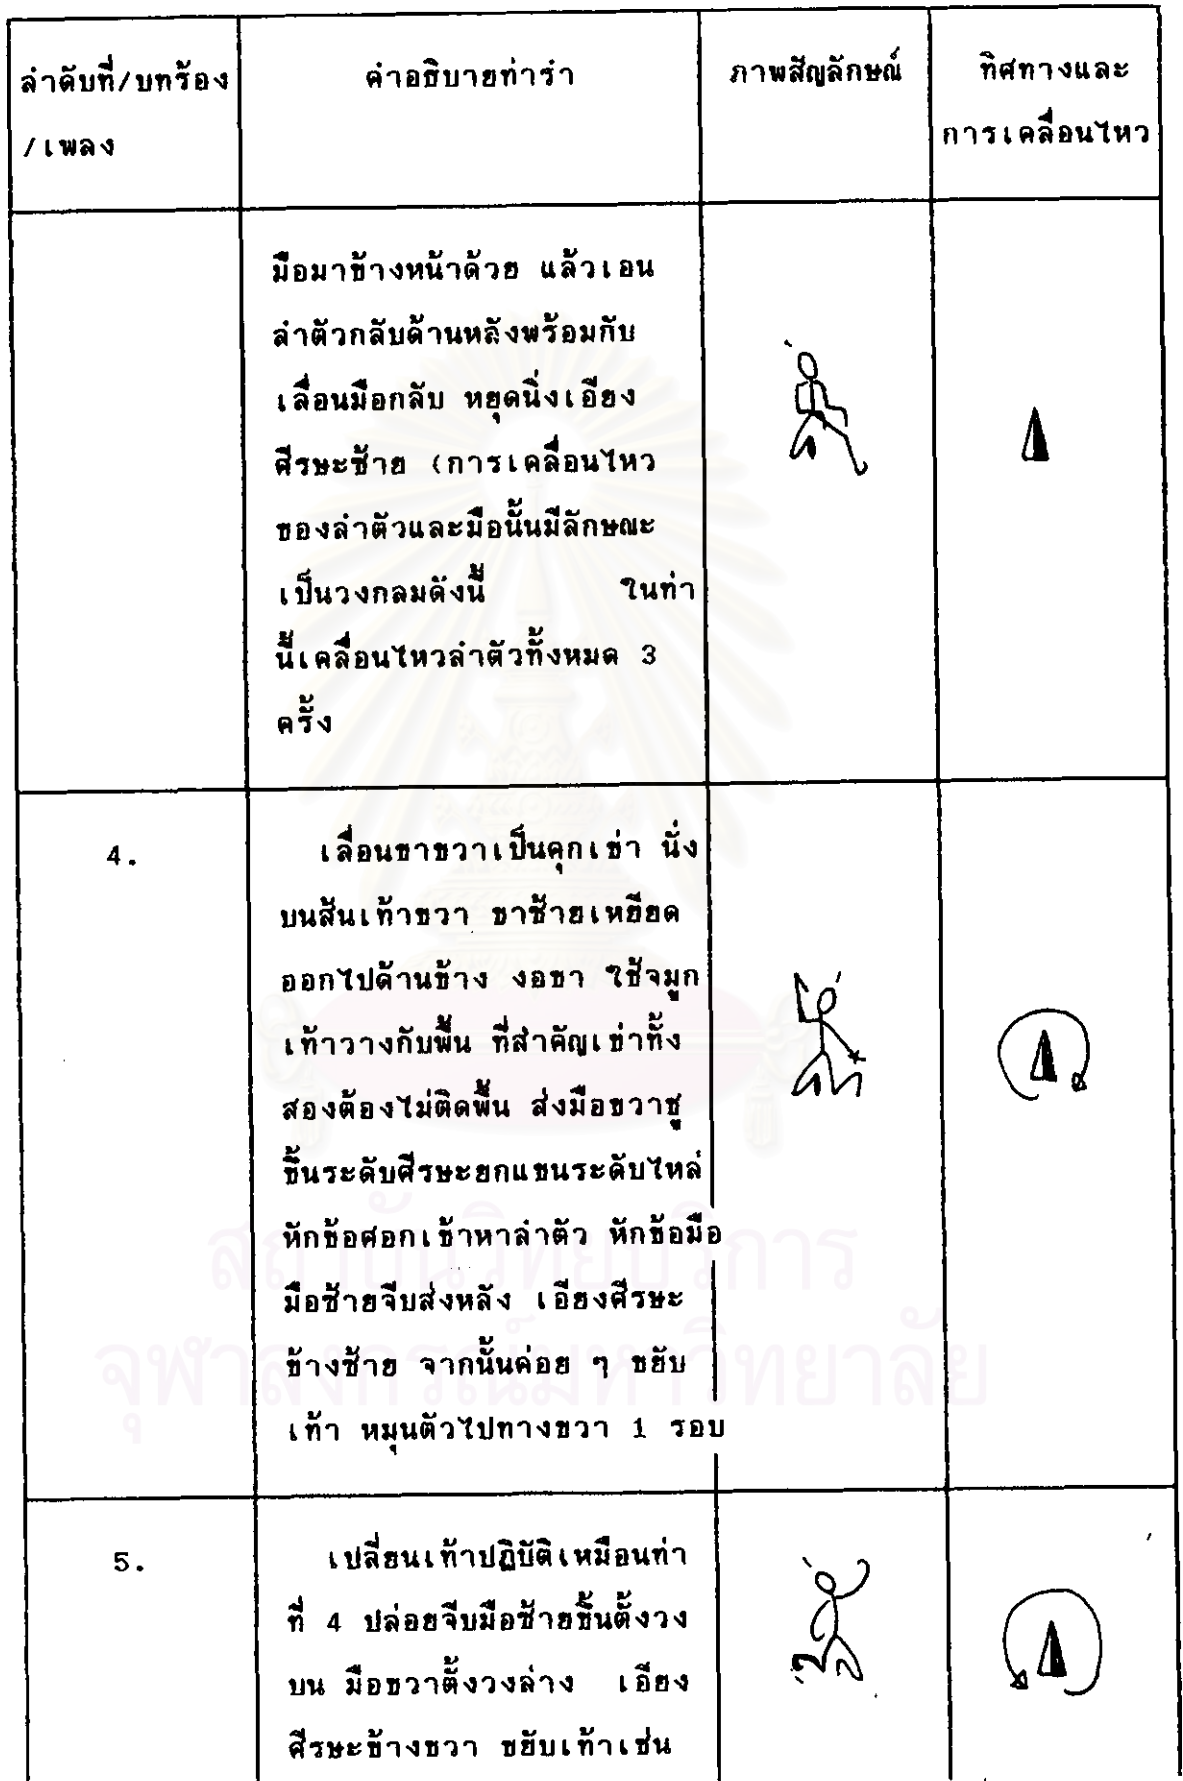 ลำดับที่/บทร้อง
/เพลง
คำอธิบายท่ารำ
ภาพสัญลักษณ์
ทิศทางและ
การเคลื่อนไหว
มือมาข้างหน้าด้วย แล้วเอน
ลำตัวกลับด้านหลังพร้อมกับ
เลื่อนมือกลับ หยุดนิ่งเอียง
ศีรษะซ้าย (การเคลื่อนไหว
ของลำตัวและมือนั้นมีลักษณะ
เป็นวงกลมดังนี้ ในท่า
นี้เคลื่อนไหวลำตัวทั้งหมด 3
ครั้ง
4.
เลื่อนขาขวาเป็นคุกเข่า นั่ง
บนส้นเท้าขวา ขาซ้ายเหยียด
ออกไปด้านข้าง งอขา ใช้จมูก
เท้าวางกับพื้น ที่สำคัญเข่าทั้ง
สองต้องไม่ติดพื้น ส่งมือขวาชู
ขึ้นระดับศีรษะยกแขนระดับไหล่
หักข้อศอกเข้าหาลำตัว หักข้อมือ
มือซ้ายจีบส่งหลัง เอียงศีรษะ
ข้างซ้าย จากนั้นค่อย ๆ ขยับ
เท้า หมุนตัวไปทางขวา 1 รอบ
5.
เปลี่ยนเท้าปฏิบัติเหมือนท่า
ที่ 4 ปล่อยจีบมือซ้ายขึ้นตั้งวง
บน มือขวาตั้งวงล่าง เอียง
ศีรษะข้างขวา ขยับเท้าเช่น
สถาบันวิทยบริการ
จุฬาลงกรณ์มหาวิทยาลัย